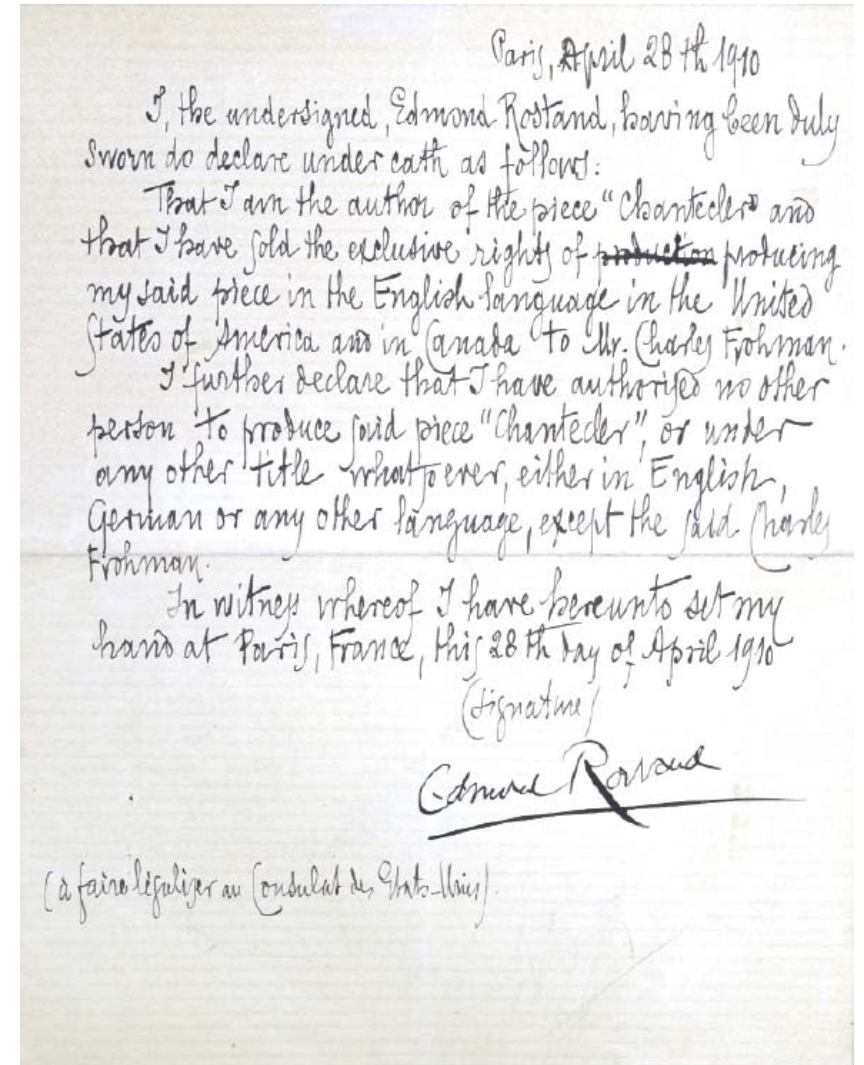 Paris, April 28 th 1910
I, the undersigned, Edmond Rostand, having been duly
sworn do declare under oath as follows:
That I am the author of the piece "Chantecler" and
that I have sold the exclusive rights of production producing
my said piece in the English language in the United
States of America and in Canada to Mr. Charles Frohman.
I further declare that I have authorised no other
person to produce said piece "Chantecler", or under
any other title whatsoever, either in English,
German or any other language, except the said Charles
Frohman.
In witness whereof I have hereunto set my
hand at Paris, France, this 28 th day of April 1910
(signature)
Edmond Rostand
(à faire légaliser au Consulat des Etats-Unis).